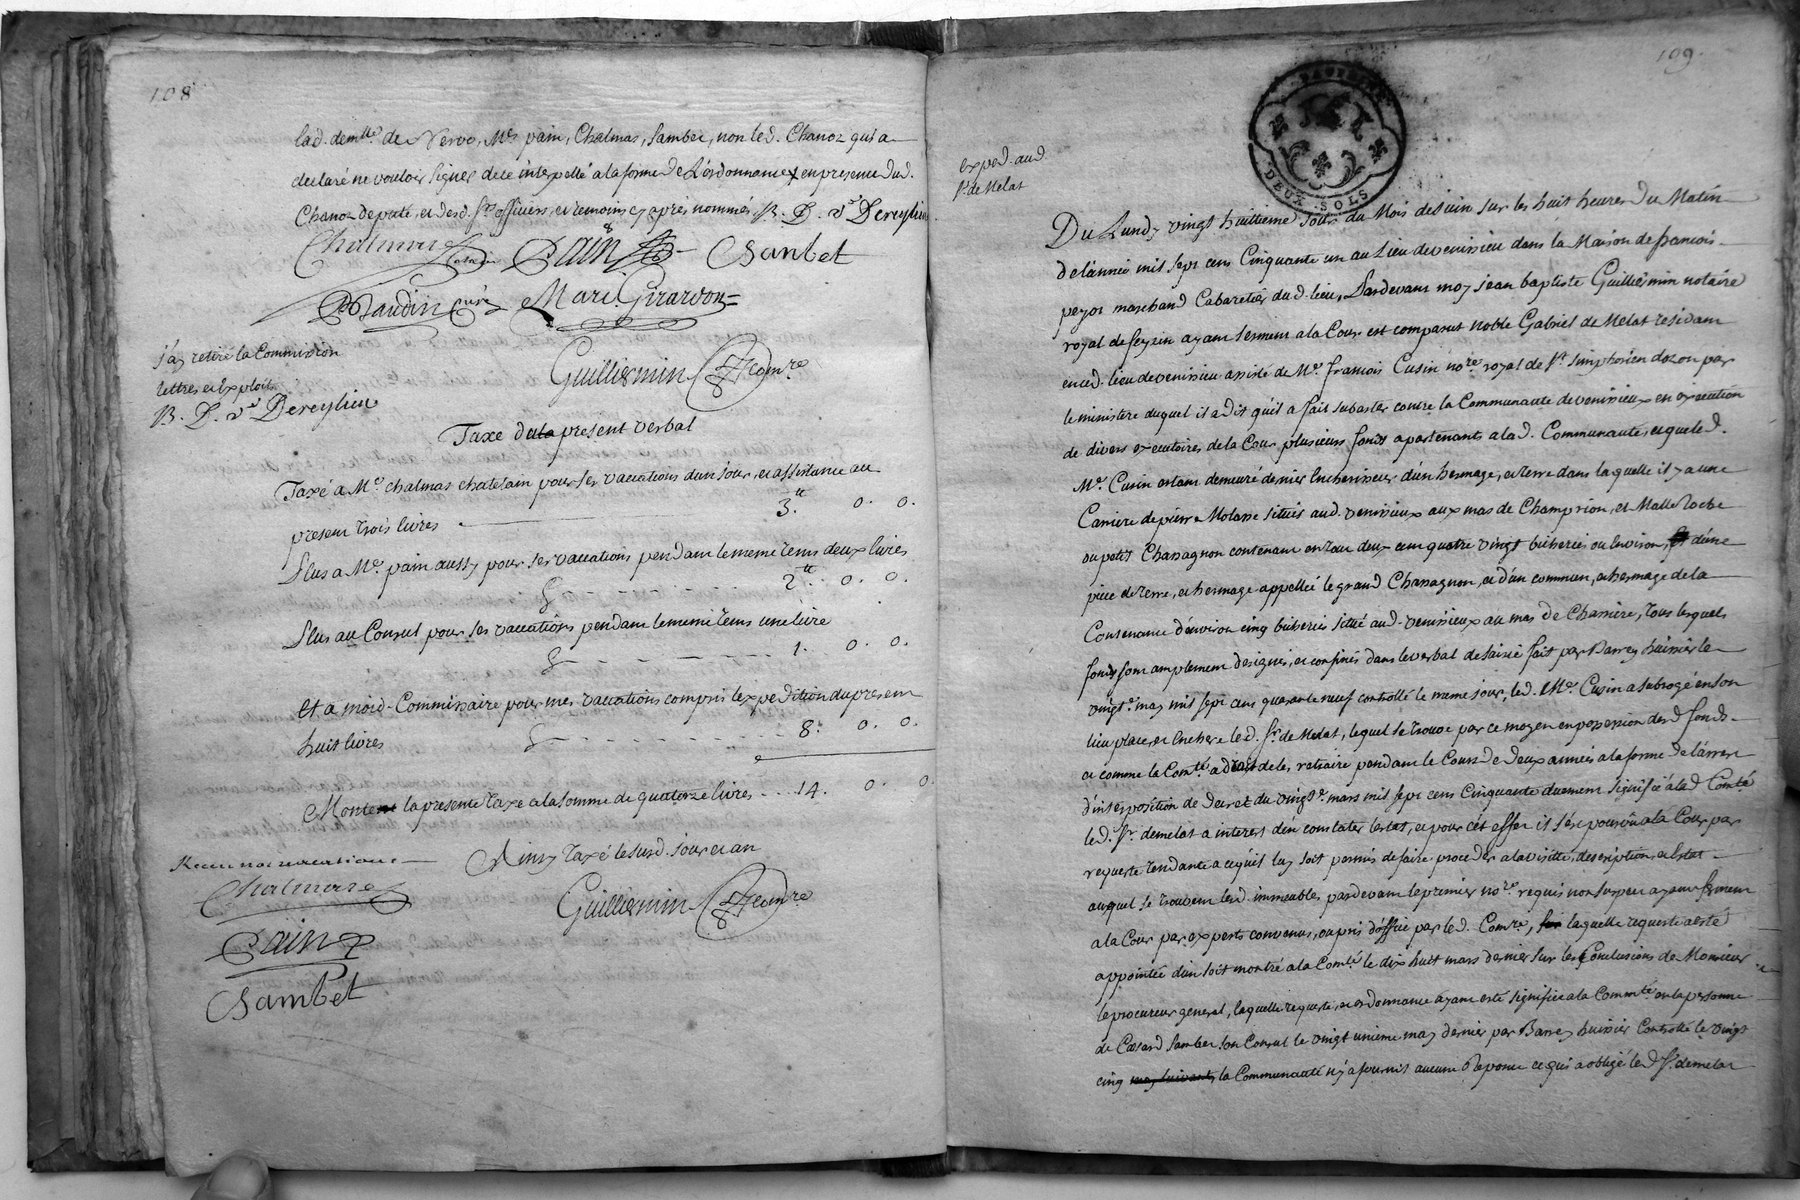 108
lad. demlle de Vervo, Mes pain, Chalmas, Sambet, non led. Chanoz qui a
declaré ne vouloir signer de ce interpellé a la forme de L'ordonnance en presence dud.
Chanoz deputé, et desd. srs officiers, et temoins cy après nommés B. D. vve Dereylieu
Chalmas Chatelain Pain Sambet
Baudin Curé Mari Girardon
j'ay retiré la Commission
lettres et Exploit
B. D. vve Dereylieu
Guilliermin Comre
Taxe du present verbal
Taxé a Me. chalmas chatelain pour ses vacations d'un jour, et assistance au
present trois livres 3.tt 0. 0.
Plus a Me. pain aussy pour ses vacations pendant le meme tems deux livres
2tt. 0. 0.
Plus au Consul pour ses vacations pendant le meme tems une livre
1. 0. 0.
Et a moid. Commissaire pour mes vacations compris l'expedition du present
huit livres 8. 0. 0.
Monte la presente Taxe a la somme de quatorze livres 14. 0. 0.
Ainsy Taxé le susd. jour et an
Receu nos vacations
Guilliermin Comre
Chalmas
Pain
Sambet
109.
DEUX SOLS
exped. aud
sr. de Melat
Du Lundy vingt huittieme jour du Mois de juin sur les huit heures du Matin
de l'année mil sept cens Cinquante un au Lieu de venissieu dans la Maison de francois
peyot marchand Cabaretier dud. lieu, Pardevant moy jean baptiste Guilliermin notaire
royal de feyzin ayant serment a la Cour est comparut noble Gabriel de Melat résidant
en ced. lieu de venissieu assisté de Me. francois Cusin nore. royal de st. simphorien dozon par
le ministere duquel il a dit qu'il a fait subaster contre la Communauté de venissieux en execution
de divers executoires de la Cour plusieurs fonds apartenants a lad. Communauté, et que led.
Me. Cusin estant demeuré dernier Encherisseur d'un hermage, et terre dans laquelle il y a une
Carriere de pierre Molasse situés aud. venissieux aux mas de Champrion, et Malle Roche
ou petit Chassagnon contenant en tout deux cent quatre vingt bicherées ou Environ, d'une
piece de terre, et hermage appellée le grand Chassagnon, et d'un commun, et hermage de la
Contenance d'environ cinq bicherées situé aud. venissieux au mas de Charriere, tous lesquels
fonds sont amplement designés, et confinés dans le verbal de saisie fait par Barrey huissier le
vingt e. may mil sept cens quarante neuf controllé le meme jour, led. Me. Cusin a subrogé en son
lieu place et Enchere led. sr. de Melat, lequel se trouve par ce moyen en possession desd. fonds
et comme la Comté a droit de les retraire pendant le Cours de Deux années a la forme de l'arrest
d'interposition de Decret du vingt e. mars mil sept cens Cinquante duement signifié a lad Comté
led. sr. demelat a interest d'en constater l'estat, et pour cet effet il s'est pourvû a la Cour par
requeste tendante a ce qu'il luy soit permis de faire proceder a la visitte, description et Estat
auquel se trouvent lesd. immeubles pardevant le premier nore. requis non suspect ayant serment
a la Cour par experts convenus, ou pris d'office par led. Comre, laquelle requeste a esté
appointée d'un soit montré a la Comté le dix huit mars dernier sur les Conclusions de Monsieur
le procureur general, laquelle requeste, et ordonnance ayant esté signifiée a la Commté en la personne
de Cæsard Sambet son Consul le vingt unieme may dernier par Barrey huissier Controllé le vingt
cinq may suivant, la Communauté n'y a fournit aucune Reponse ce qui a obligé led. sr. demelat